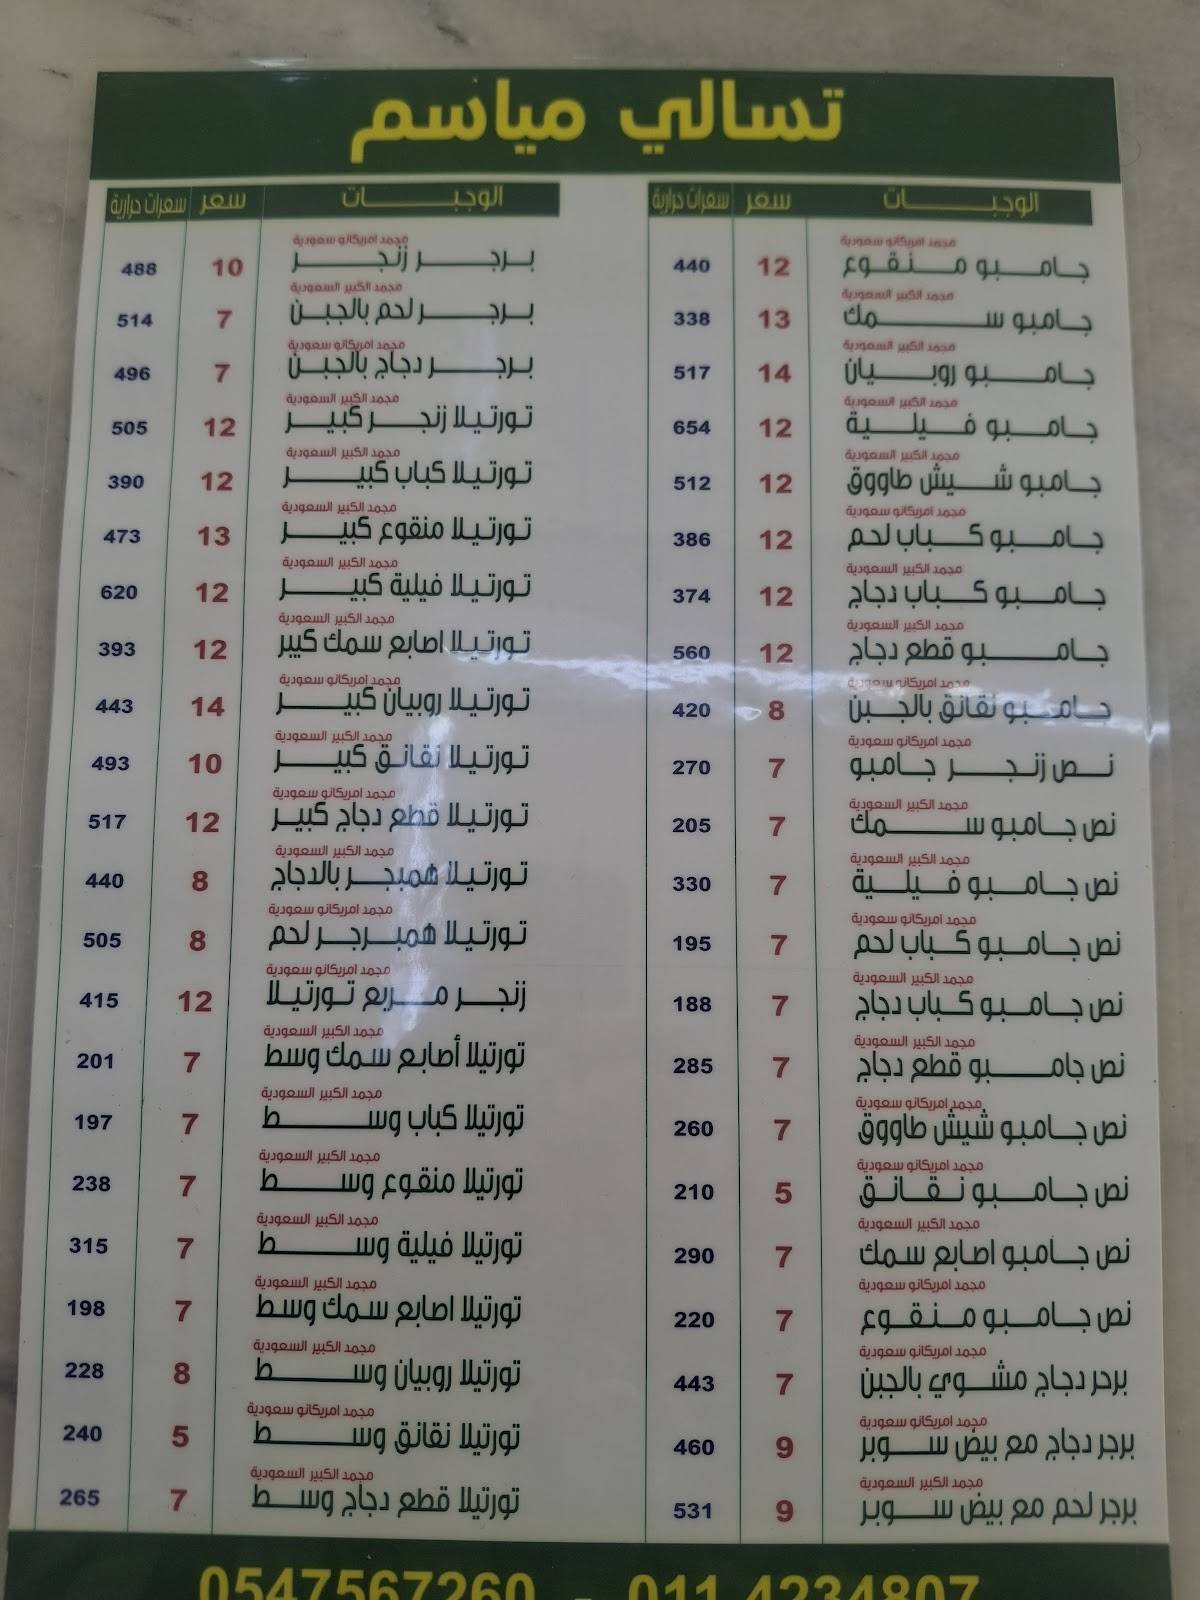 تسالي مياسم
الوجبات سعر سعرات حرارية
مجمد امريكانو سعودية
جامبو منقوع 12 440
مجمد الكبير السعودية
جامبو سمك 13 338
مجمد الكبير السعودية
جامبو روبيان 14 517
مجمد الكبير السعودية
جامبو فيلية 12 654
مجمد الكبير السعودية
جامبو شيش طاووق 12 512
مجمد امريكانو سعودية
جامبو كباب لحم 12 386
مجمد الكبير السعودية
جامبو كباب دجاج 12 374
مجمد الكبير السعودية
جامبو قطع دجاج 12 560
مجمد امريكانو سعودية
جامبو نقانق بالجبن 8 420
مجمد امريكانو سعودية
نص زنجر جامبو 7 270
مجمد الكبير السعودية
نص جامبو سمك 7 205
مجمد الكبير السعودية
نص جامبو فيلية 7 330
مجمد امريكانو سعودية
نص جامبو كباب لحم 7 195
مجمد الكبير السعودية
نص جامبو كباب دجاج 7 188
مجمد الكبير السعودية
نص جامبو قطع دجاج 7 285
مجمد امريكانو سعودية
نص جامبو شيش طاووق 7 260
مجمد امريكانو سعودية
نص جامبو نقانق 5 210
مجمد الكبير السعودية
نص جامبو اصابع سمك 7 290
مجمد امريكانو سعودية
نص جامبو منقوع 7 220
مجمد امريكانو سعودية
برحر دجاج مشوي بالجبن 7 443
مجمد امريكانو سعودية
برجر دجاج مع بيض سوبر 9 460
مجمد الكبير السعودية
برجر لحم مع بيض سوبر 9 531
الوجبات سعر سعرات حرارية
مجمد امريكانو سعودية
برجر زنجر 10 488
مجمد الكبير السعودية
برجر لحم بالجبن 7 514
مجمد امريكانو سعودية
برجر دجاج بالجبن 7 496
مجمد الكبير السعودية
تورتيلا زنجر كبير 12 505
مجمد الكبير السعودية
تورتيلا كباب كبير 12 390
مجمد الكبير السعودية
تورتيلا منقوع كبير 13 473
مجمد الكبير السعودية
تورتيلا فيلية كبير 12 620
مجمد الكبير السعودية
تورتيلا اصابع سمك كبير 12 393
مجمد امريكانو سعودية
تورتيلا روبيان كبير 14 443
مجمد الكبير السعودية
تورتيلا نقانق كبير 10 493
مجمد امريكانو سعودية
تورتيلا قطع دجاج كبير 12 517
مجمد الكبير السعودية
تورتيلا همبجر بالاجاج 8 440
مجمد امريكانو سعودية
تورتيلا همبرجر لحم 8 505
مجمد امريكانو سعودية
زنجر مربع تورتيلا 12 415
مجمد الكبير السعودية
تورتيلا أصابع سمك وسط 7 201
مجمد الكبير السعودية
تورتيلا كباب وسط 7 197
مجمد الكبير السعودية
تورتيلا منقوع وسط 7 238
مجمد الكبير السعودية
تورتيلا فيلية وسط 7 315
مجمد الكبير السعودية
تورتيلا اصابع سمك وسط 7 198
مجمد الكبير السعودية
تورتيلا روبيان وسط 8 228
مجمد امريكانو سعودية
تورتيلا نقانق وسط 5 240
مجمد الكبير السعودية
تورتيلا قطع دجاج وسط 7 265
0547567260 - 011 4234807